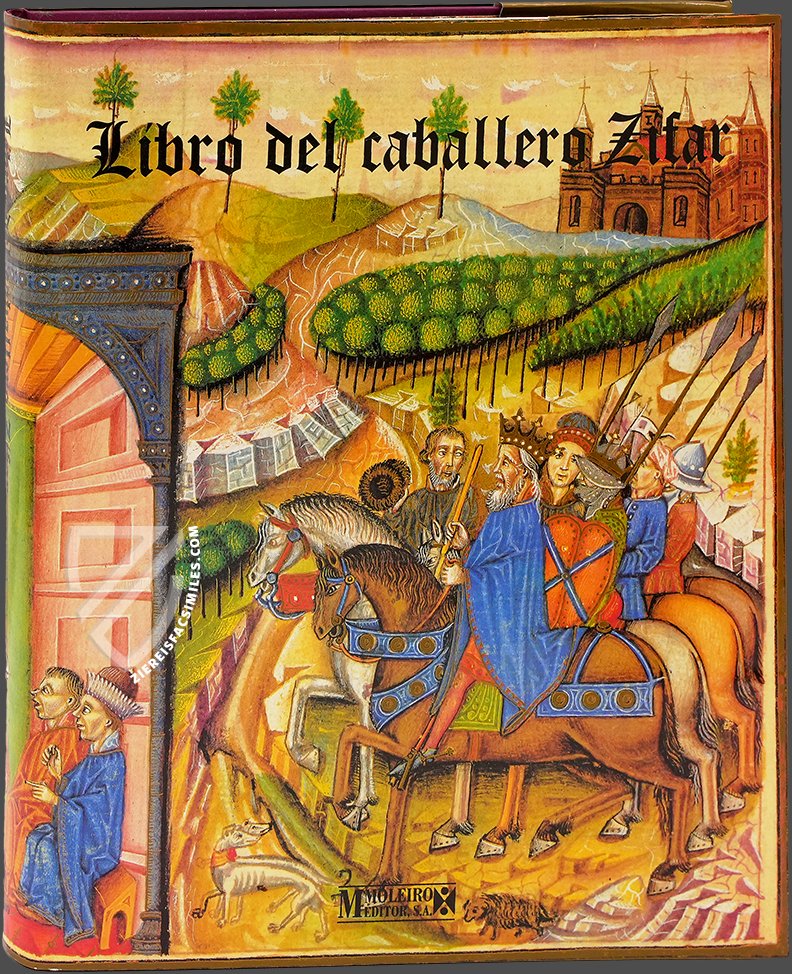 Libro del caballero Zifar
ZIEREISFACSIMILES.COM
M MOLEIRO
EDITOR, S.A.